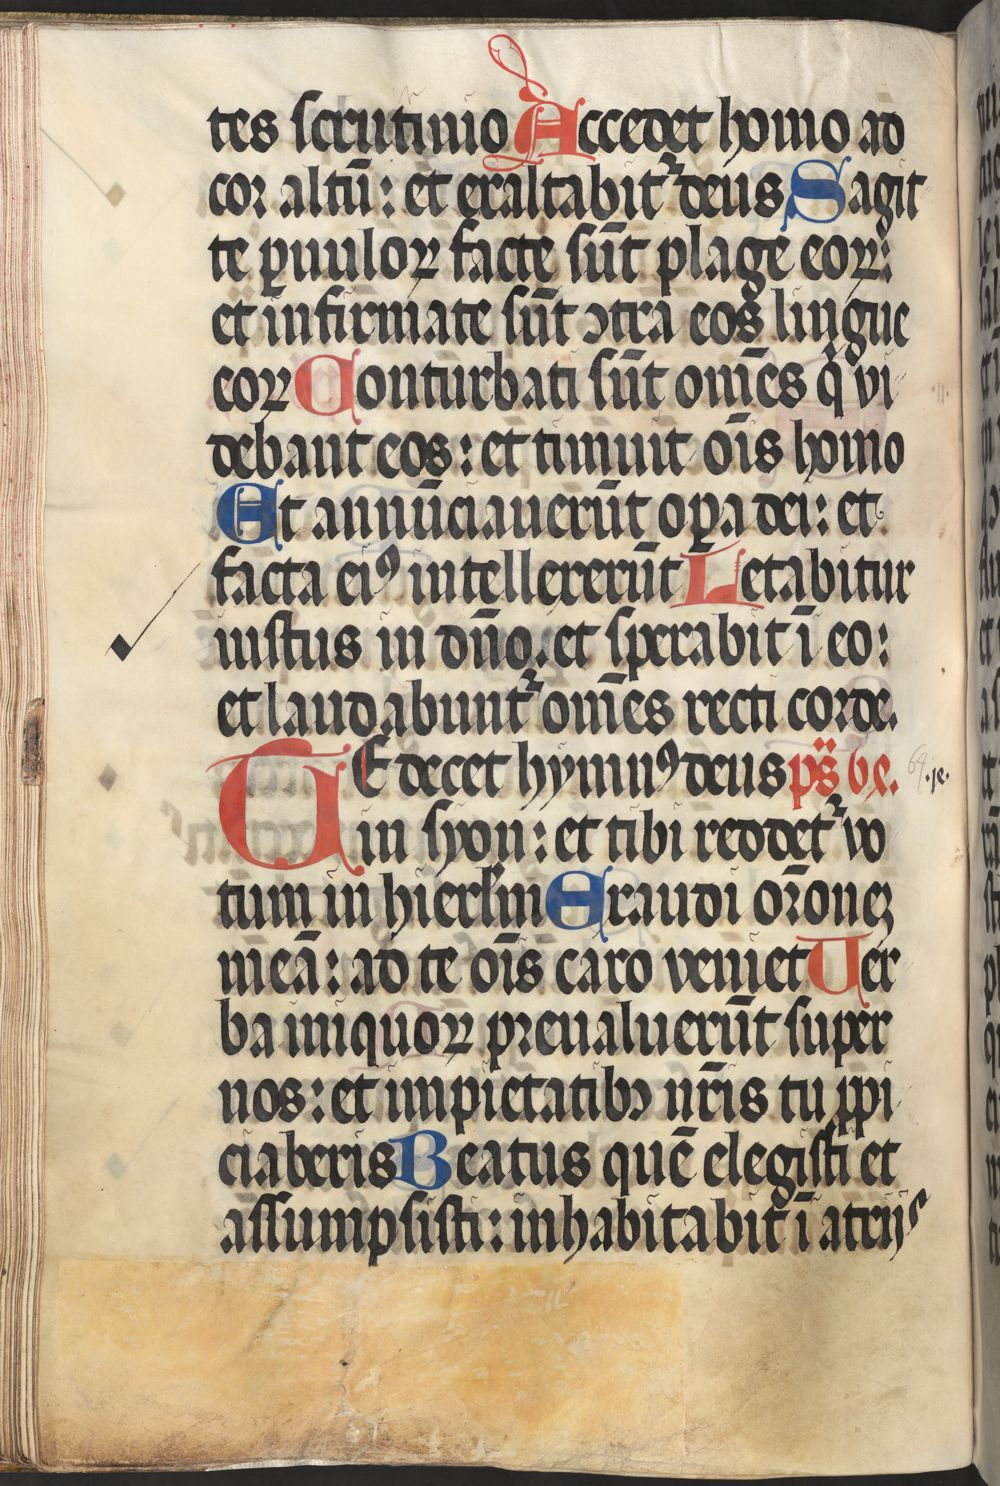 tes scrutinio Accedet homo ad
cor altū: et exaltabit᷑ deus Sagit
te ꝑuuloꝝ facte sūt plage eoꝝ:
et infirmate sūt ɔtra eos lingue
eoꝝ Conturbati sūt om̄es q̇ vi
debant eos: et timuit oīs homo
Et annūciauerūt oꝑa dei: et
facta eiꝰ intellexerūt Letabitur
iustus in dn̄o. et sperabit ī eo:
et laudabunt᷑ om̄es recti corde.
TE decet hymnꝰ deus ps̄
in syon: et tibi reddet᷑ vo
tum in hierlm̄ Exaudi or̄oneꝫ
meā: ad te oīs caro veniet Uer
ba iniquoꝝ preualuerūt super
nos: et impietatibꝫ nr̄is tu ꝓpi
ciaberis Beatus quē elegisti et
assumpsisti: inhabitabit ī atrijs